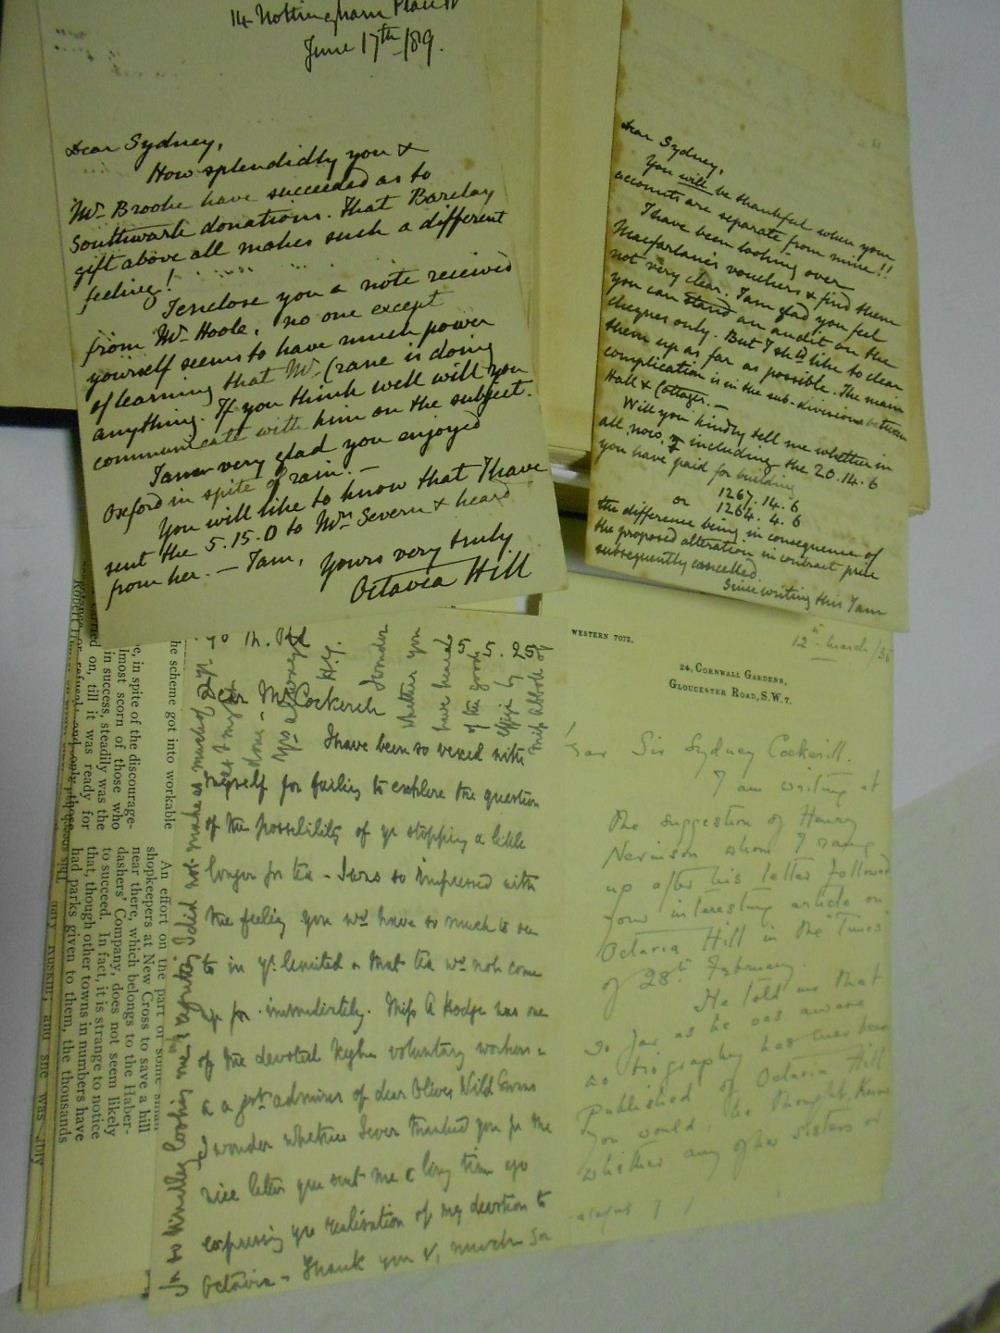 14 Nottingham Place W
June 17th /89.
Dear Sydney,
How splendidly you &
Mr Brooke have succeeded as to
Southwark donations. That Barclay
gift above all makes such a different
feeling!
I enclose you a note received
from Mr Hoole, no one except
yourself seems to have much power
of learning that Mr Crane is doing
anything. If you think well will you
communicate with him on the subject.
I am very glad you enjoyed
Oxford in spite of rain. —
You will like to know that I have
sent the 5.15.0 to Mrs Severn & heard
from her. — I am,
Yours very truly
Octavia Hill
Dear Sydney,
You will be thankful when your
accounts are separate from mine!!
I have been looking over
Macfarlane's vouchers & find them
not very clear. I am glad you feel
you can stand an audit on the
cheques only. But I shd like to clear
them up as far as possible. The main
complication is in the sub-divisions between
Hall & Cottages. —
Will you kindly tell me whether in
all, now, & including the 20.14.6
you have paid for building
1267.14.6
or 1264.4.6
the difference being in consequence of
the proposed alteration in contract price
subsequently cancelled
Since writing this I am
5.5.25
Dear Mr Cockerell
I have been so vexed with
myself for failing to explore the question
of the possibility of yr stopping a little
longer for tea - I was so impressed with
the feeling you wd have so much to see
to in yr limited & that tea wd not come
up for immediately. Miss A Hodge was one
of the devoted voluntary workers -
& a grt admirer of dear Olive
wonder whether I ever thanked you for the
nice letter you sent me a long time ago
expressing yr realisation of my devotion to
Octavia - Thank you v. much
wonder
whether you
have heard
of the good
by
Miss Abbott of
he scheme got into workable
e, in spite of the discourage-
lmost scorn of those who
in success, steadily was the
carried on, till it was ready for
An effort on the part of some small
shopkeepers at New Cross to save a hill
near there, which belongs to the Haber-
dashers' Company, does not seem likely
to succeed. In fact, it is strange to notice
that, though other towns in numbers have
had parks given to them, the thousands
WESTERN 7072.
12th March/36
24, CORNWALL GARDENS,
GLOUCESTER ROAD, S.W.7.
Dear Sir Sydney Cockerell.
I am writing at
the suggestion of Henry
Nevinson whom I rang
up after his letter followed
your interesting article on
Octavia Hill in the 'Times'
of 28th February.
He told me that
so far as he was aware
no biography has ever been
published of Octavia Hill
you would, he thought, know
whether any of her sisters or